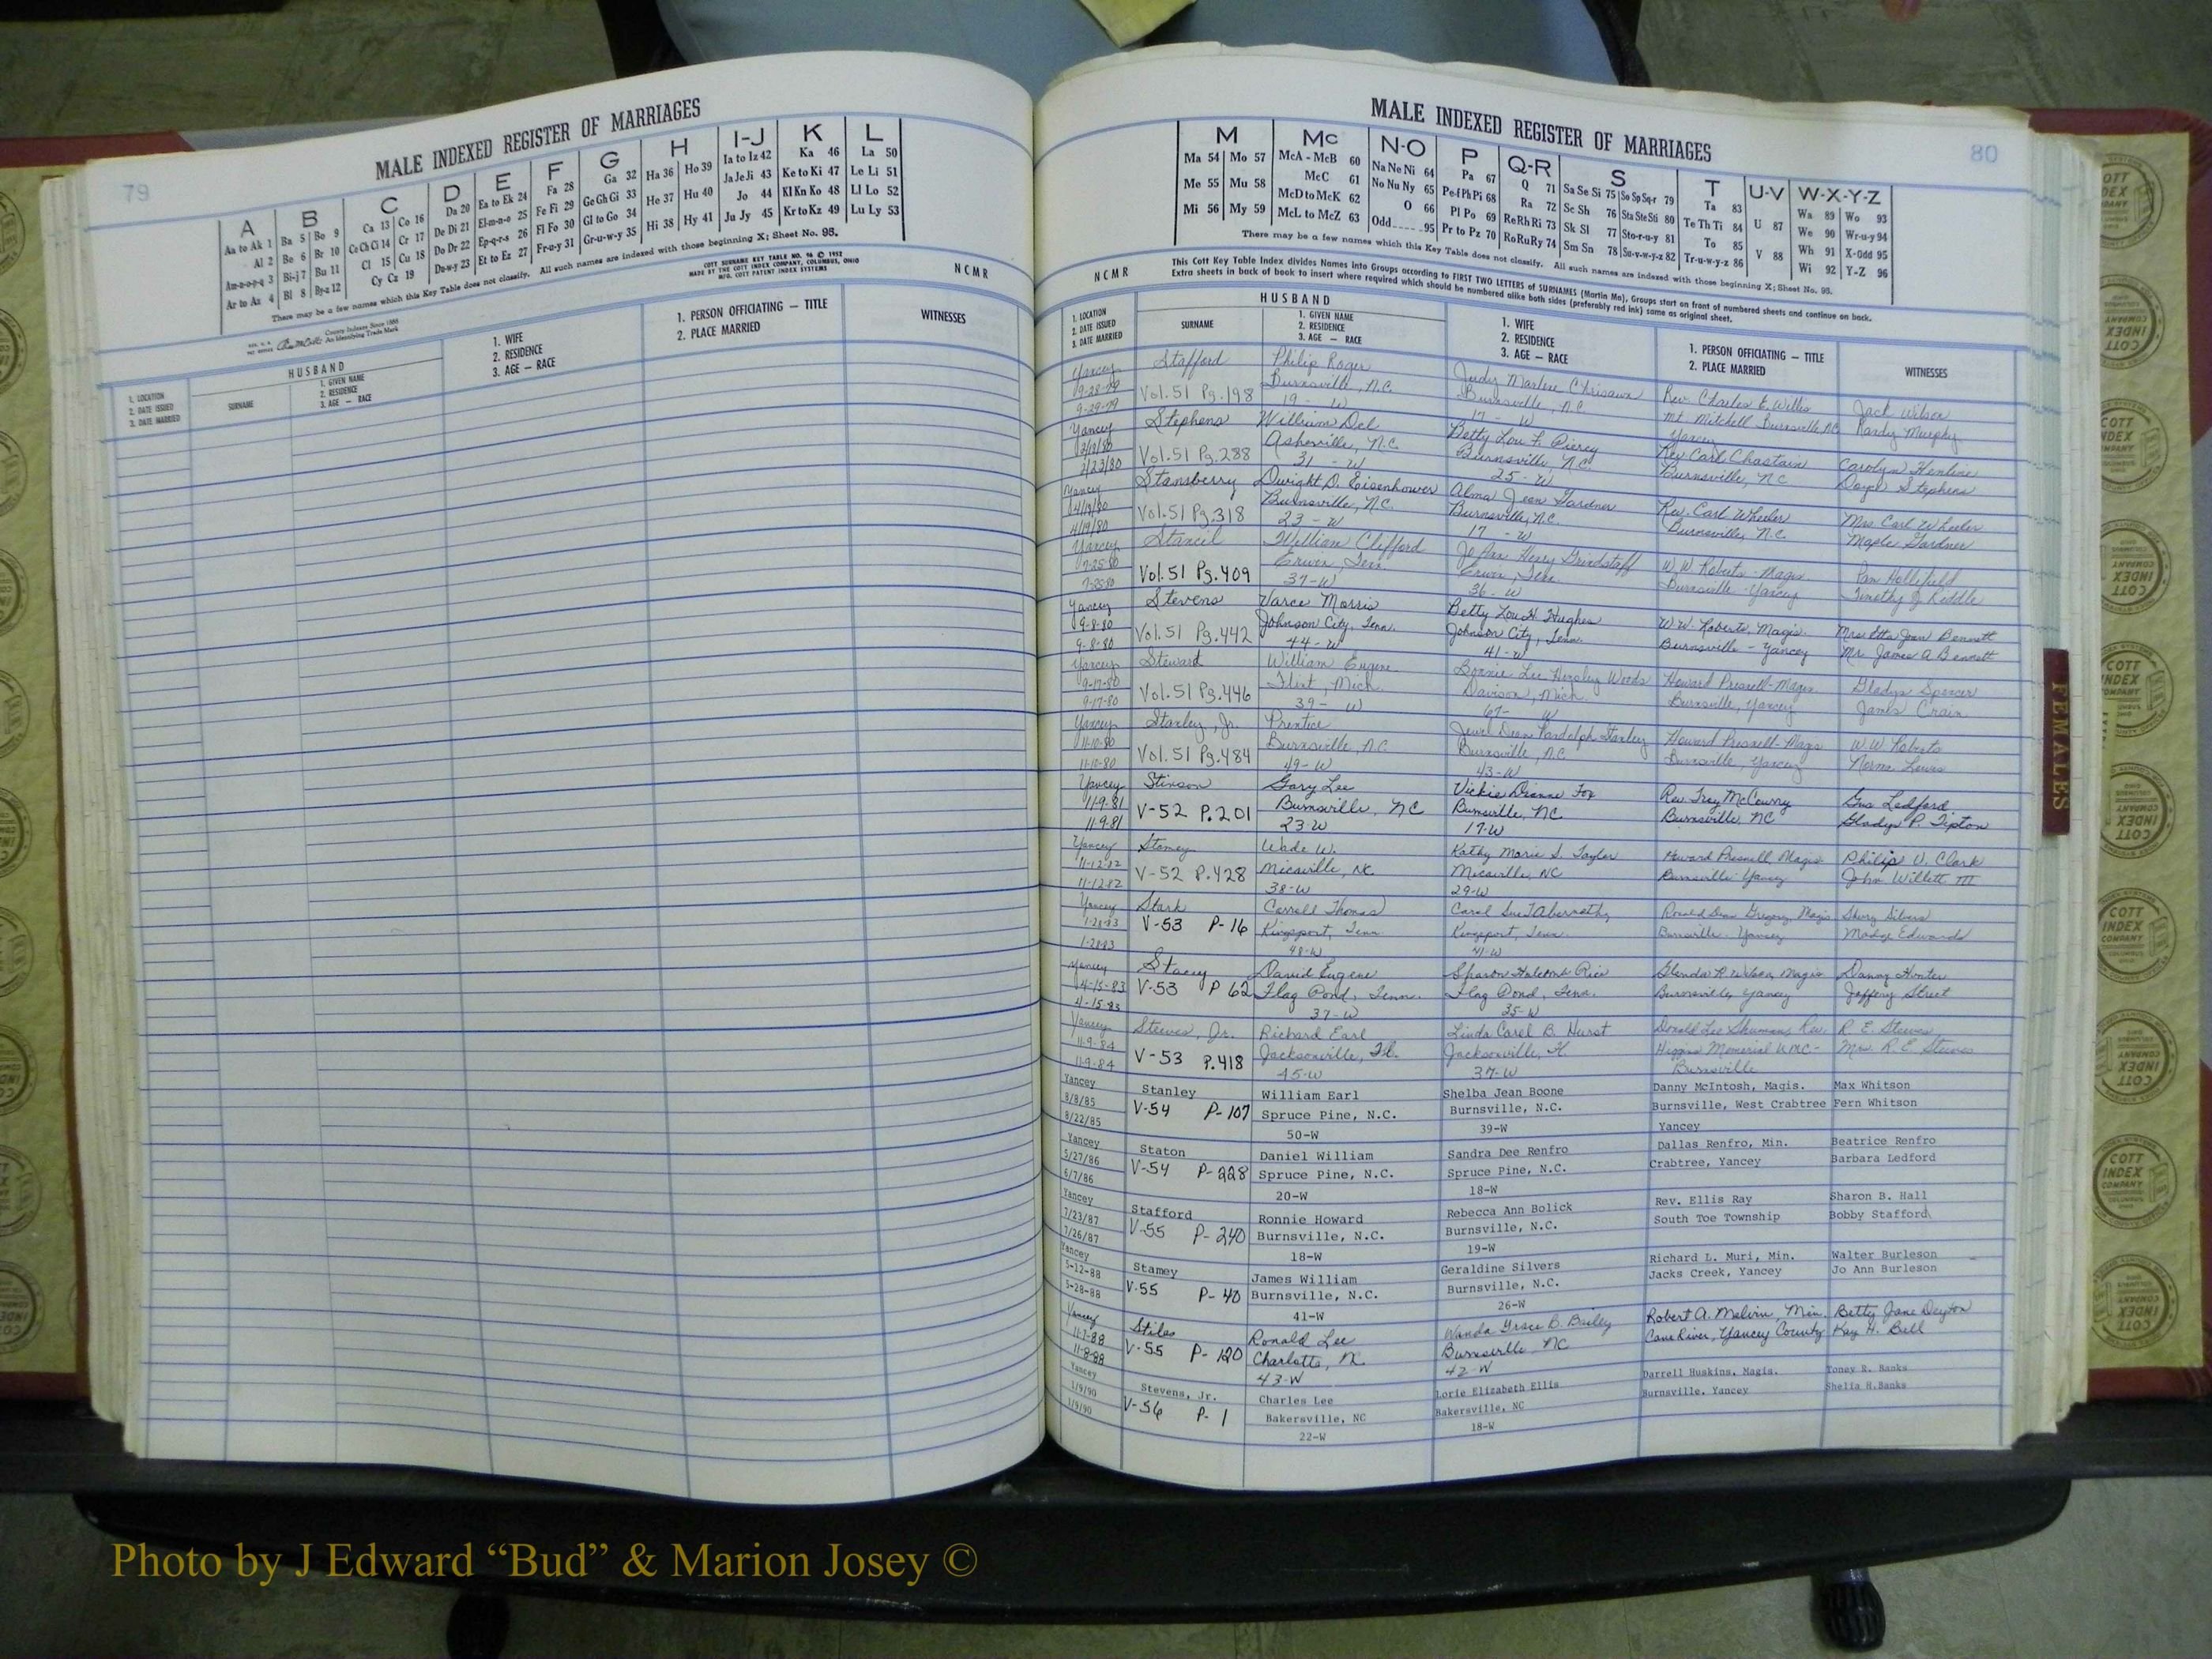 79
MALE INDEXED REGISTER OF MARRIAGES
A
Aa to Ak 1
Al 2
Am-n-o-p-q 3
Ar to Az 4
B
Ba 5 Bo 9
Be 6 Br 10
Bi-j 7 Bu 11
Bl 8 By-z 12
C
Ca 13 Co 16
Ce Ch Ci 14 Cr 17
Cl 15 Cu 18
Cy Cz 19
D
Da 20
De Di 21
Do Dr 22
Du-w-y 23
E
Ea to Ek 24
El-m-n-o 25
Ep-q-r-s 26
Et to Ez 27
F
Fa 28
Fe Fi 29
Fl Fo 30
Fr-u-y 31
G
Ga 32
Ge Gh Gi 33
Gl to Go 34
Gr-u-w-y 35
H
Ha 36 Ho 39
He 37 Hu 40
Hi 38 Hy 41
I-J
Ia to Iz 42
Ja Je Ji 43
Jo 44
Ju Jy 45
K
Ka 46
Ke to Ki 47
Kl Kn Ko 48
Kr to Kz 49
L
La 50
Le Li 51
Ll Lo 52
Lu Ly 53
There may be a few names which this Key Table does not classify. All such names are indexed with those beginning X; Sheet No. 95.
COTT SURNAME KEY TABLE NO. 96 © 1952
MADE BY THE COTT INDEX COMPANY, COLUMBUS, OHIO
MFG. COTT PATENT INDEX SYSTEMS
NCMR
County Indexes Since 1888
An Identifying Trade Mark
1. LOCATION
2. DATE ISSUED
3. DATE MARRIED
HUSBAND
SURNAME
1. GIVEN NAME
2. RESIDENCE
3. AGE — RACE
1. WIFE
2. RESIDENCE
3. AGE — RACE
1. PERSON OFFICIATING — TITLE
2. PLACE MARRIED
WITNESSES
MALE INDEXED REGISTER OF MARRIAGES
80
M
Ma 54 Mo 57
Me 55 Mu 58
Mi 56 My 59
Mc
McA - McB 60
McC 61
McD to McK 62
McL to McZ 63
N-O
Na Ne Ni 64
No Nu Ny 65
O 66
Odd 95
P
Pa 67
Pe-f Ph Pi 68
Pl Po 69
Pr to Pz 70
Q-R
Q 71
Ra 72
Re Rh Ri 73
Ro Ru Ry 74
S
Sa Se Si 75 So Sp Sq-r 79
Sc Sh 76 Sta Ste Sti 80
Sk Sl 77 Sto-r-u-y 81
Sm Sn 78 Su-v-w-y-z 82
T
Ta 83
Te Th Ti 84
To 85
Tr-u-w-y-z 86
U-V
U 87
V 88
W-X-Y-Z
Wa 89 Wo 93
We 90 Wr-u-y 94
Wh 91 X-Odd 95
Wi 92 Y-Z 96
There may be a few names which this Key Table does not classify. All such names are indexed with those beginning X; Sheet No. 95.
This Cott Key Table Index divides Names into Groups according to FIRST TWO LETTERS of SURNAMES (Martin Ma), Groups start on front of numbered sheets and continue on back.
Extra sheets in back of book to insert where required which should be numbered alike both sides (preferably red ink) same as original sheet.
NCMR
1. LOCATION
2. DATE ISSUED
3. DATE MARRIED
HUSBAND
SURNAME
1. GIVEN NAME
2. RESIDENCE
3. AGE — RACE
1. WIFE
2. RESIDENCE
3. AGE — RACE
1. PERSON OFFICIATING — TITLE
2. PLACE MARRIED
WITNESSES
Yancey Stafford Philip Roger Judy Marlene Chrisawn Rev. Charles E. Willis Jack Wilson
9-28-79 Vol. 51 Pg. 198 Burnsville, N.C. Burnsville, N.C. Mt. Mitchell Burnsville, NC Randy Murphy
9-29-79 19 - W 17 - W Yancey
Yancey Stephens William Del Betty Lou F. Piercy Rev. Carl Chastain Carolyn Henline
Vol. 51 Pg. 288 Asheville, N.C. Burnsville, N.C. Burnsville, N.C. Stephens
2/23/80 31 - W 25 - W
Yancey Stansberry Dwight D. Eisenhower Alma Jean Gardner Rev. Carl Wheeler Mrs Carl Wheeler
4/19/80 Vol. 51 Pg. 318 Burnsville, N.C. Burnsville, N.C. Burnsville, N.C. Maple Gardner
4/19/80 23 - W 17 - W
Yancey Stancil William Clifford Henry Grindstaff W.W. Roberts - Magis Pam Hollifield
7-25-80 Vol. 51 Pg. 409 Erwin, Tenn. Erwin, Tenn. Burnsville - Yancey Timothy J. Riddle
7-25-80 37-W 36 - W
Yancey Stevens Vance Morris Betty Lou H. Hughes W.W. Roberts, Magis. Mrs Etta Jean Bennett
9-8-80 Vol. 51 Pg. 442 Johnson City, Tenn. Johnson City, Tenn. Burnsville - Yancey Mr. James A Bennett
9-8-80 44 - W 41 - W
Yancey Steward William Eugene Bonnie Lee Hensley Woods Howard Presnell-Magis Gladys Spencer
9-17-80 Vol. 51 Pg. 446 Flint, Mich. Davison, Mich. Burnsville, Yancey James Crain
9-17-80 39 - W W
Yancey Stanley, Jr. Prentice Jewel Dean Randolph Stanley Howard Presnell-Magis W.W. Roberts
11-10-80 Vol. 51 Pg. 484 Burnsville, N.C. Burnsville, N.C. Burnsville, Yancey Norma Lewis
11-10-80 49 - W 43 - W
Yancey Stinson Gary Lee Vickie Dianne Fox Rev. Troy McCourry Gus Ledford
11-9-81 V-52 P. 201 Burnsville, NC Burnsville, NC Burnsville, NC Gladys P. Tipton
11-9-81 23-W 17-W
Yancey Stamey Wade W. Kathy Marie S. Taylor Howard Presnell, Magis Philip V. Clark
11-12-82 V-52 P. 428 Micaville, NC Micaville, NC Burnsville-Yancey John Willett III
11-12-82 38-W 29-W
Yancey Stark Carroll Thomas Carol Sue Abernathy Ronald Dean Gregory Magis Silvers
1-28-83 V-53 P-16 Kingsport, Tenn Kingsport, Tenn. Burnsville-Yancey Madge Edwards
1-28-83 48-W 41-W
Yancey Stacey David Eugene Sharon Holcomb Rice Glenda R. Wilson, Magis Danny Hunter
4-15-83 V-53 P 62 Flag Pond, Tenn. Flag Pond, Tenn. Burnsville, Yancey Jeffery Street
4-15-83 37-W 35-W
Yancey Steeves, Jr. Richard Earl Linda Carol B. Hurst Donald Lee Shuman, Rev. R. E. Steeves
11-9-84 V-53 P. 418 Jacksonville, Fl. Jacksonville, Fl. Higgins Memorial UMC- Mrs. R. E Steeves
11-9-84 45-W 37-W Burnsville
Yancey Stanley William Earl Shelba Jean Boone Danny McIntosh, Magis. Max Whitson
8/8/85 V-54 P-107 Spruce Pine, N.C. Burnsville, N.C. Burnsville, West Crabtree Fern Whitson
8/22/85 50-W 39-W Yancey
Yancey Staton Daniel William Sandra Dee Renfro Dallas Renfro, Min. Beatrice Renfro
5/27/86 V-54 P-228 Spruce Pine, N.C. Spruce Pine, N.C. Crabtree, Yancey Barbara Ledford
6/7/86 20-W 18-W
Yancey Stafford Ronnie Howard Rebecca Ann Bolick Rev. Ellis Ray Sharon B. Hall
7/23/87 V-55 P-240 Burnsville, N.C. Burnsville, N.C. South Toe Township Bobby Stafford
7/26/87 18-W 19-W
Yancey Stamey James William Geraldine Silvers Richard L. Muri, Min. Walter Burleson
5-12-88 V-55 P-40 Burnsville, N.C. Burnsville, N.C. Jacks Creek, Yancey Jo Ann Burleson
5-28-88 41-W 26-W
Yancey Stiles Ronald Lee Wanda Grace B. Bailey Robert A. Melvin, Min. Betty Jane Deyton
11-7-88 V-55 P-120 Charlotte, NC Burnsville NC Cane River, Yancey County Kay H. Bell
11-8-88 43-W 42-W
Yancey Stevens, Jr. Charles Lee Lorie Elizabeth Ellis Darrell Huskins, Magis. Toney R. Banks
1/9/90 V-56 P-1 Bakersville, NC Bakersville, NC Burnsville, Yancey Shelia H. Banks
1/9/90 22-W 18-W
FEMALES
COTT
INDEX
COMPANY
Photo by J Edward “Bud” & Marion Josey ©